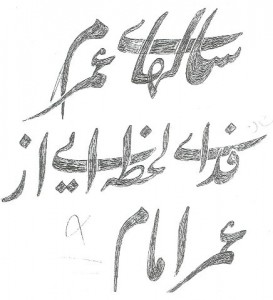 سالهای عمرم
فدای لحظه ای از
عمر امام